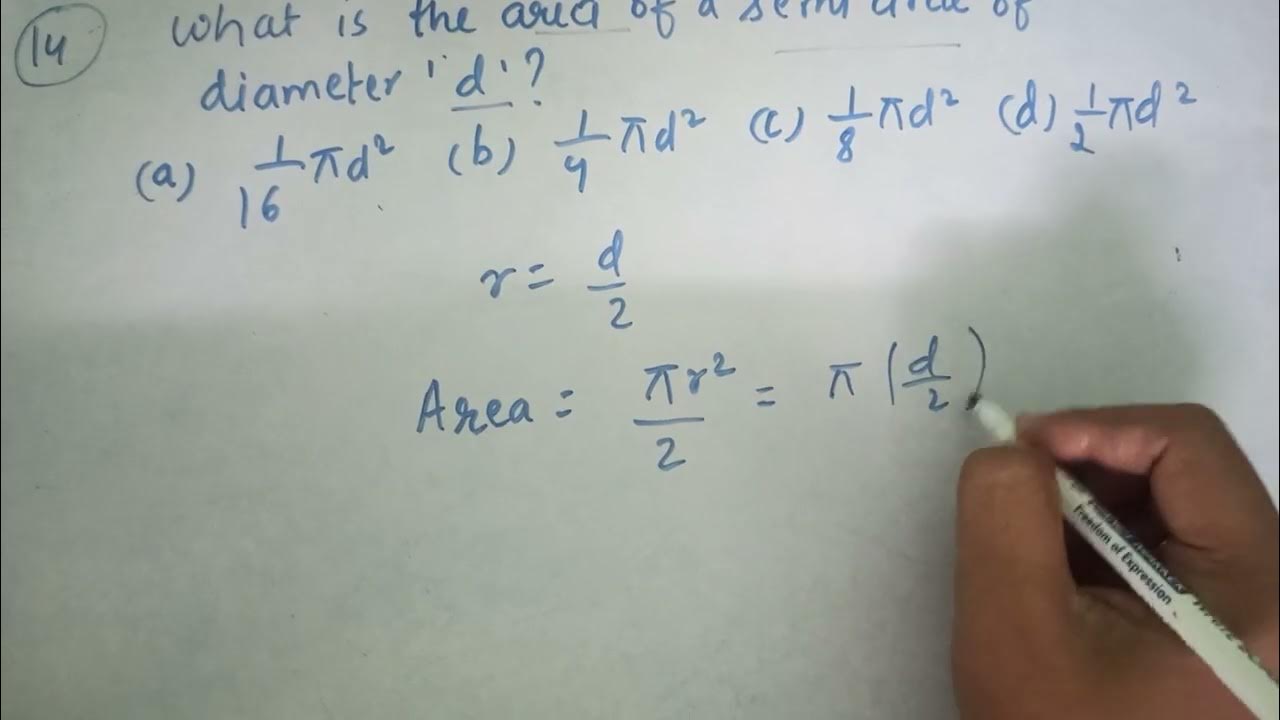 14 What is the area of a semi circle of
diameter 'd'?
(a) 1/16 πd² (b) 1/4 πd² (c) 1/8 πd² (d) 1/2 πd²
r = d/2
Area = πr²/2 = π (d/2)
Freedom of Expression